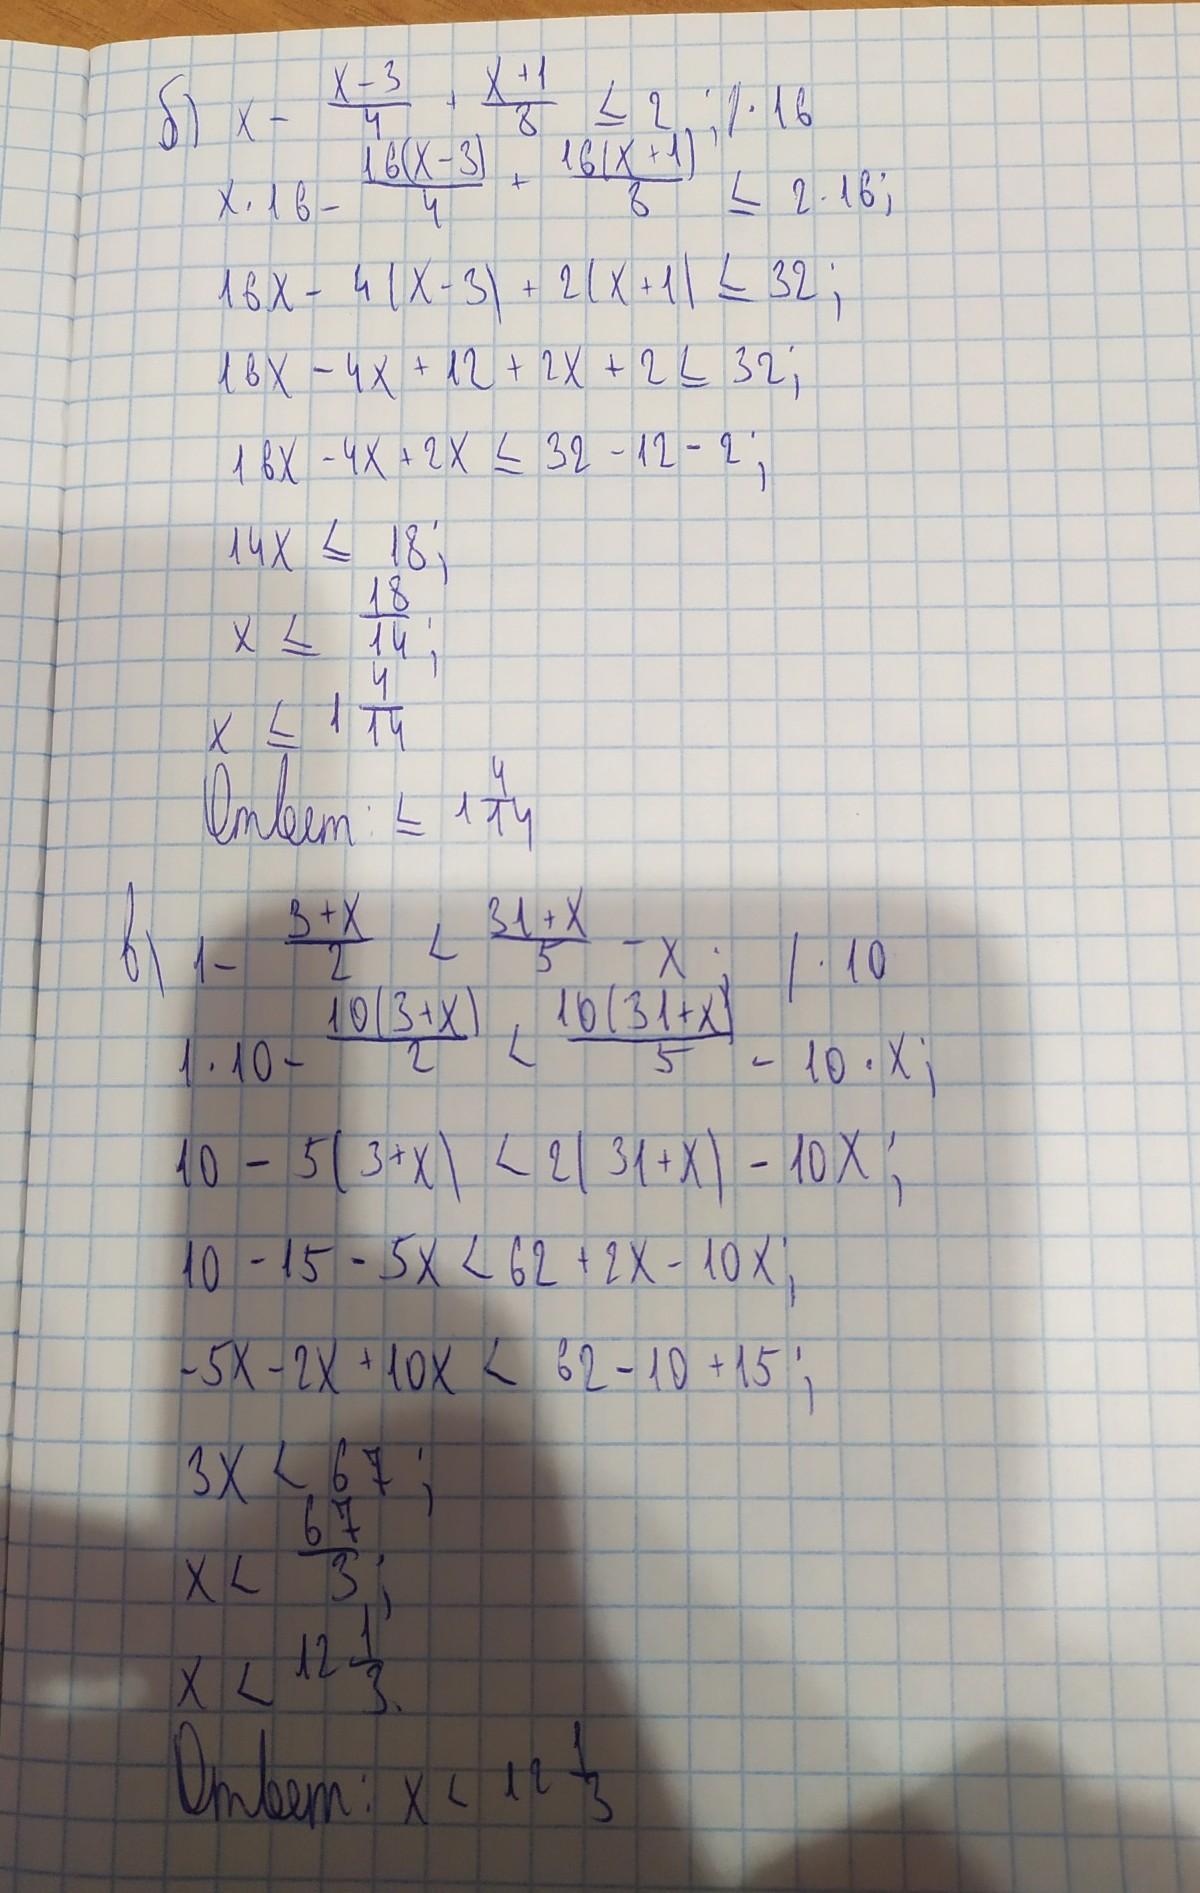 б) x - \frac{x-3}{4} + \frac{x+1}{8} ≤ 2 ; / · 16
x · 16 - \frac{16(x-3)}{4} + \frac{16(x+1)}{8} ≤ 2 · 16;
16x - 4(x-3) + 2(x+1) ≤ 32;
16x - 4x + 12 + 2x + 2 ≤ 32;
16x - 4x + 2x ≤ 32 - 12 - 2;
14x ≤ 18;
x ≤ \frac{18}{14};
x ≤ 1\frac{4}{14}
Ответ: ≤ 1\frac{4}{14}
в) 1 - \frac{3+x}{2} < \frac{31+x}{5} - x ; / · 10
1 · 10 - \frac{10(3+x)}{2} < \frac{10(31+x)}{5} - 10 · x;
10 - 5(3+x) < 2(31+x) - 10x;
10 - 15 - 5x < 62 + 2x - 10x;
-5x - 2x + 10x < 62 - 10 + 15;
3x < 67;
x < \frac{67}{3};
x < 12\frac{1}{3}.
Ответ: x < 12\frac{1}{3}